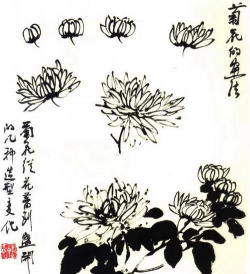 菊花的画法
菊花从花蕾到盛开
的几种造型变化